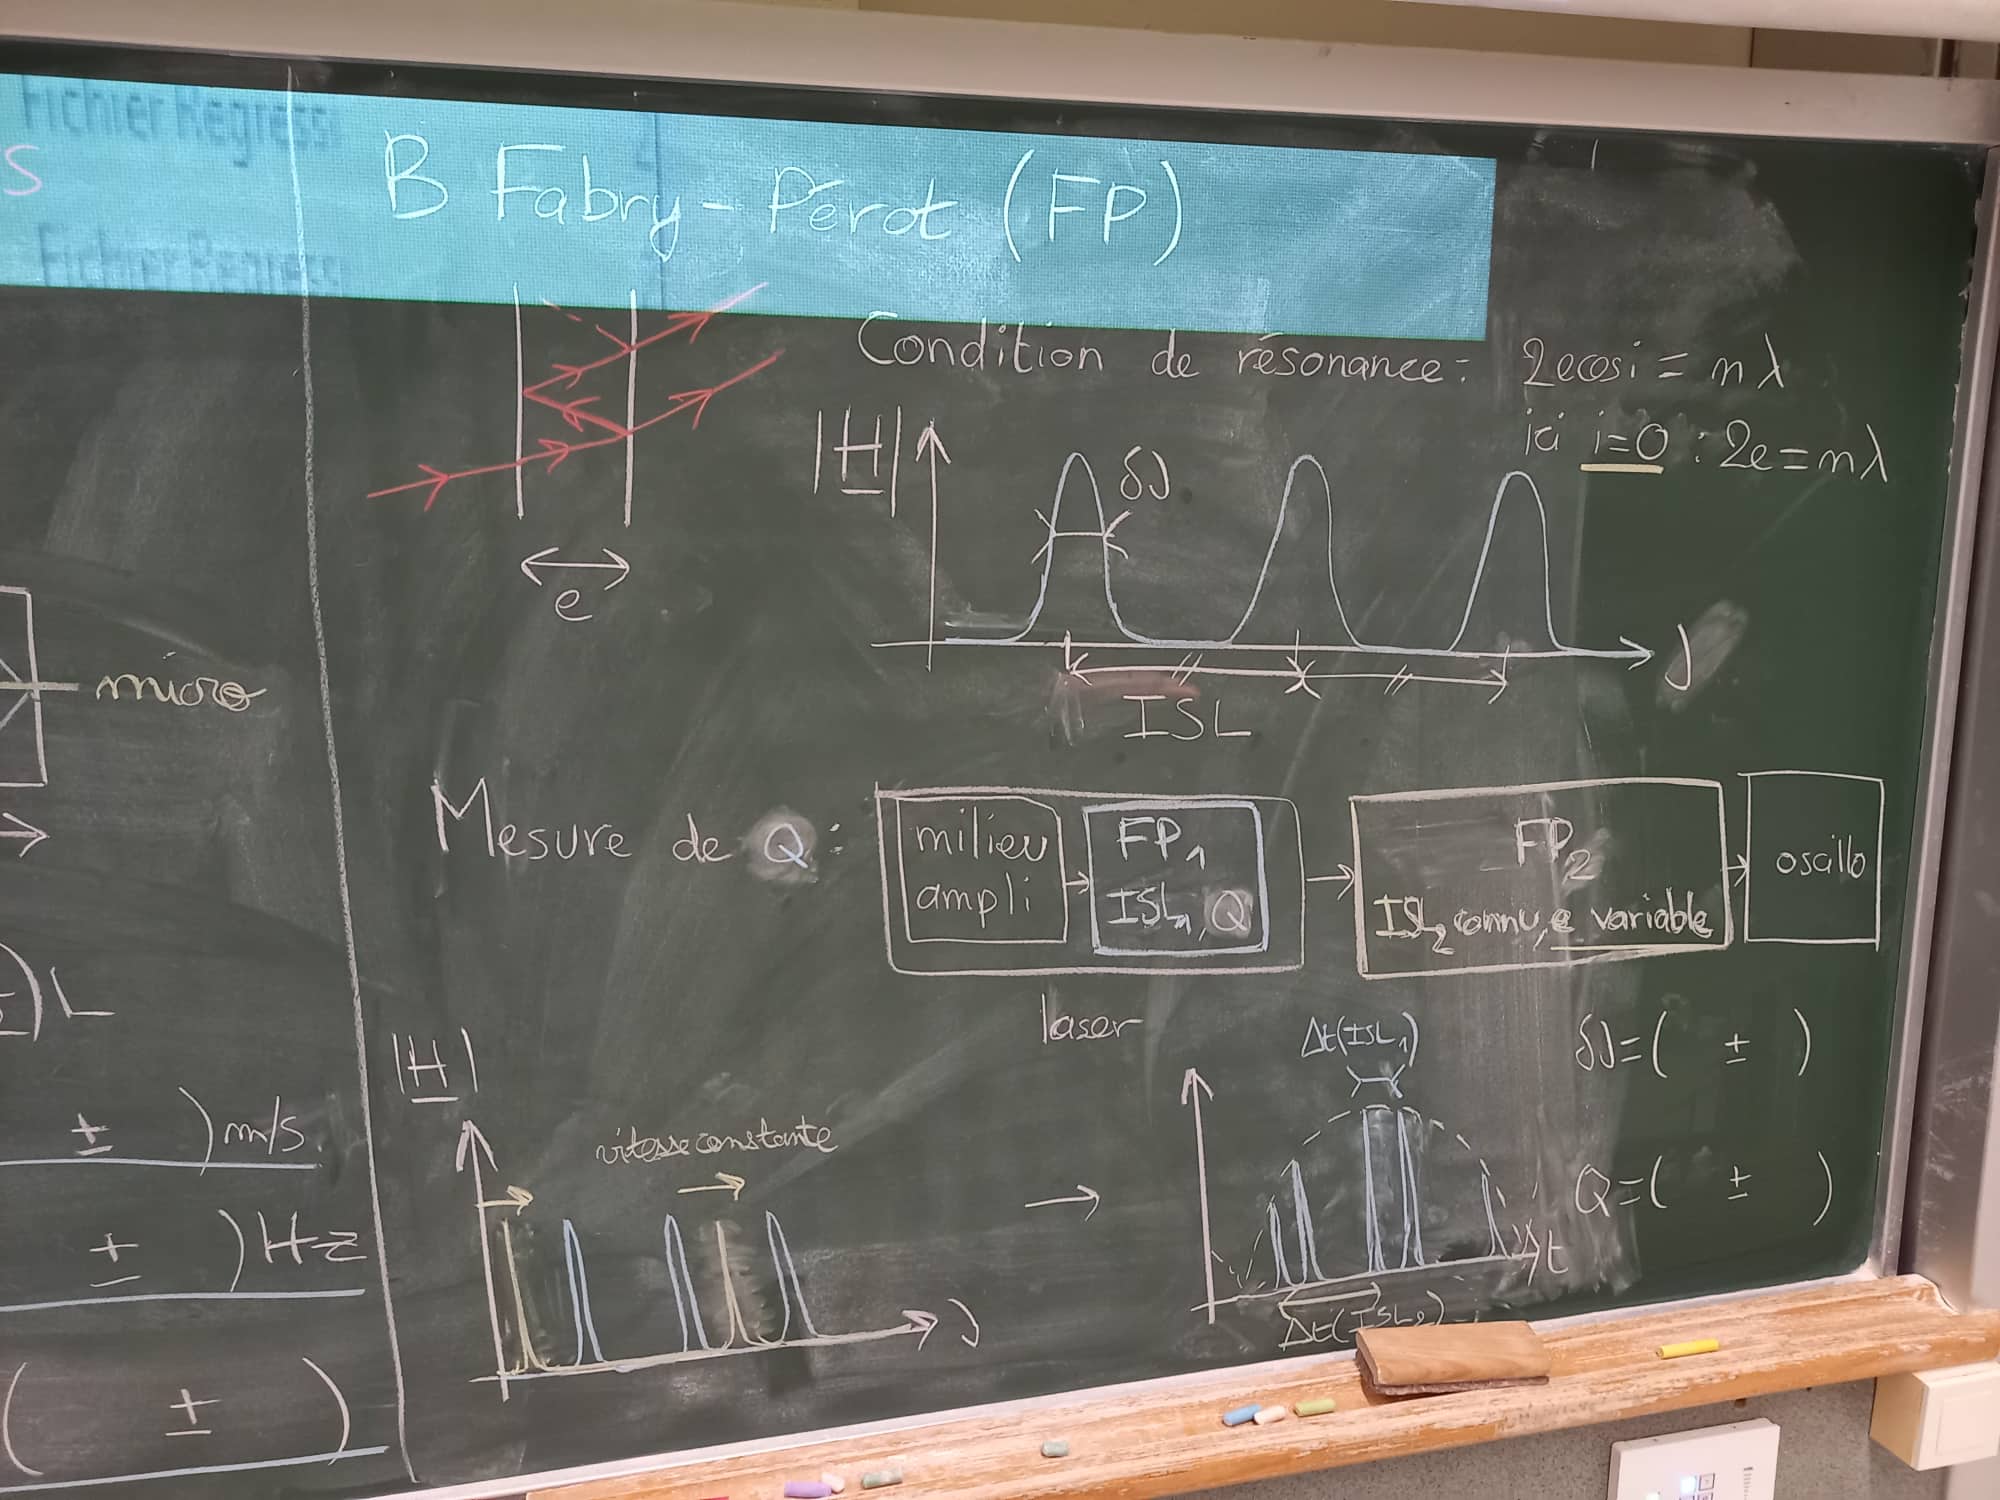 Fichier Regressi
s
Fichier Regress
B Fabry-Pérot (FP)
Condition de résonance : 2ecosi = nλ
ici i=0 : 2e=nλ
|H|
δν
e
ν
ISL
micro
Mesure de Q :
milieu
ampli
FP1
ISL1, Q
FP2
ISL2 connu, e variable
oscillo
laser
)L
± ) m/s.
± ) Hz
( ± )
|H|
vitesse constante
ν
Δt(ISL1)
t
Δt(ISL2)
δν=( ± )
Q=( ± )